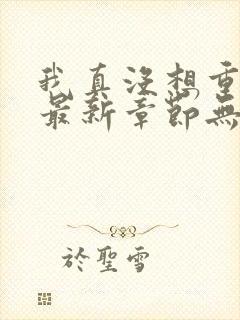 我真没想重
最新章節無
於聖雪